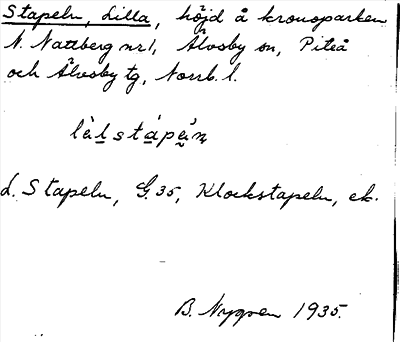 Stapeln, Lilla, höjd å kronoparken
N. Nattberg nr 1, Älvsby sn, Piteå
och Älvsby tg, Norrb. l.
L. Stapeln, G. 35, Klockstapeln, ek.
B. Nygren 1935.